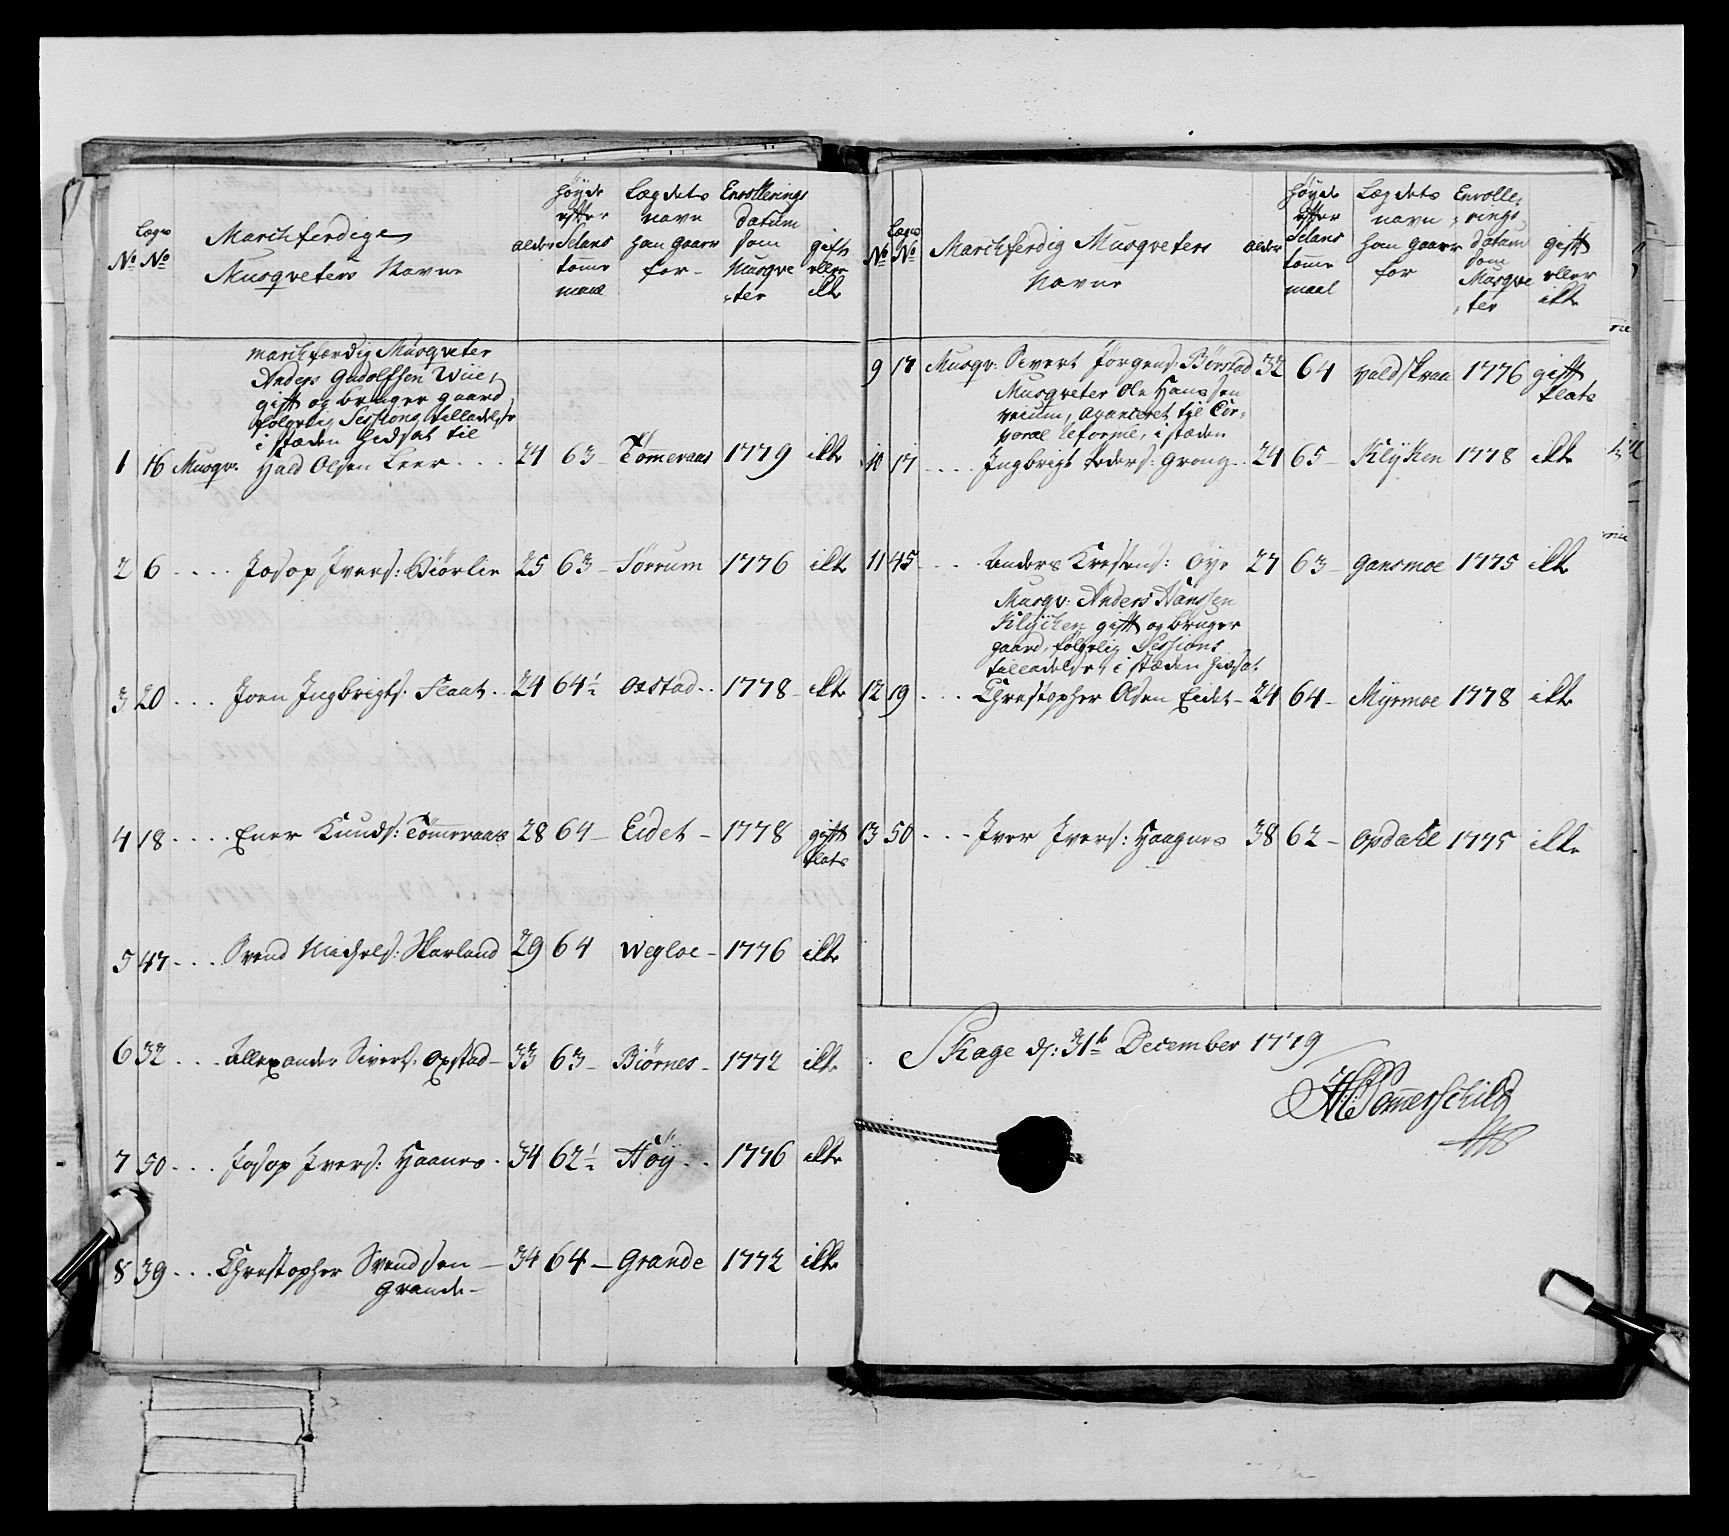 No
Lægs No
Marchferdige
Musqveters Navne
alder
høyde
efter
Selans
tomme
maal
Lægdets
navn
han gaar
for
Enrollerings
datum
som
Musqve
ter
gift
eller
ikke
marchfærdig Musqveter
Anders Gudolfsen Wiie,
gift og bruger gaard
følgelig Sessions tilladelse
i stæden hidsat til
1 16 Musqv: Hald Olsen Leer .... 24 63 - Tømeraas 1779 ikke
2 6 .... Josop Ivers: Biørlie 25 63 - Sørrum 1776 ikke
3 20 ... Joen Ingbrigts: Flaat .. 24 64½ Oxstad .. 1778 - ikke
4 18 .... Ener Knuds: Tømeraas 28 64 - Eidet - 1778 gift
Plats
5 47 ... Svend Michels: Skarland 29 64 Wegloe - 1776 ikke
6 32 ... Allexander Sivers: Oxstad - 33 63 - Biørnes - 1772 ikke
7 50 ... Josop Ivers: Haanes . 34 62½ Høÿ .. 1776 ikke
8 39 ... Christopher Svendsen - 34 64 - Grande 1772 ikke
Grande -
No
Lægs No
Marchferdig Musqveters
Navne
alder
høyde
efter
Selans
tomme
maal
Lægdets
navn
han gaar
for
Enrolle,
rings
datum
som
Musqve
ter
gift
eller
ikke
9 17 Musqv: Sivert Jørgens: Børstad 32 64 valdskraa 1776 gift
Plats
Musqveter Ole Hanssen
veium, avanceret til Cor,
poral reforme, i stæden
10 17 .... Ingbrigt Peders: Grong .. 24 65 - Klyken 1778 ikke
11 45 .... Anders Krestens: Øye 27 63 - Gansmoe 1775 ikke
Musqv: Anders Hanssen
Klÿcken gift og bruger
gaard, følgelig Sessions
tilladelse, i stæden hidsat
12 19 ... Christopher Olsen Eidet - 24 64 - Myrmoe 1778 ikke
13 50 ... Iver Ivers: Haagnes 38 62 - Opdahl 1775 ikke
Skage d: 31t December 1779
Sommerschild